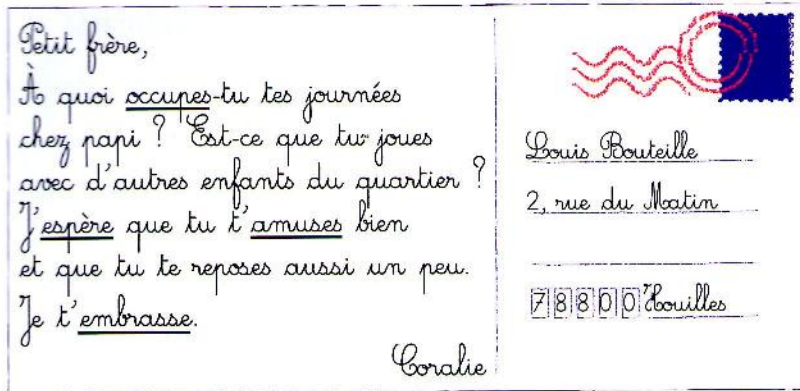 Petit frère,
À quoi occupes-tu tes journées
chez papi ? Est-ce que tu joues
avec d'autres enfants du quartier ?
J'espère que tu t'amuses bien
et que tu te reposes aussi un peu.
Je t'embrasse.
Coralie
Louis Bouteille
2, rue du Matin
78800 Houilles